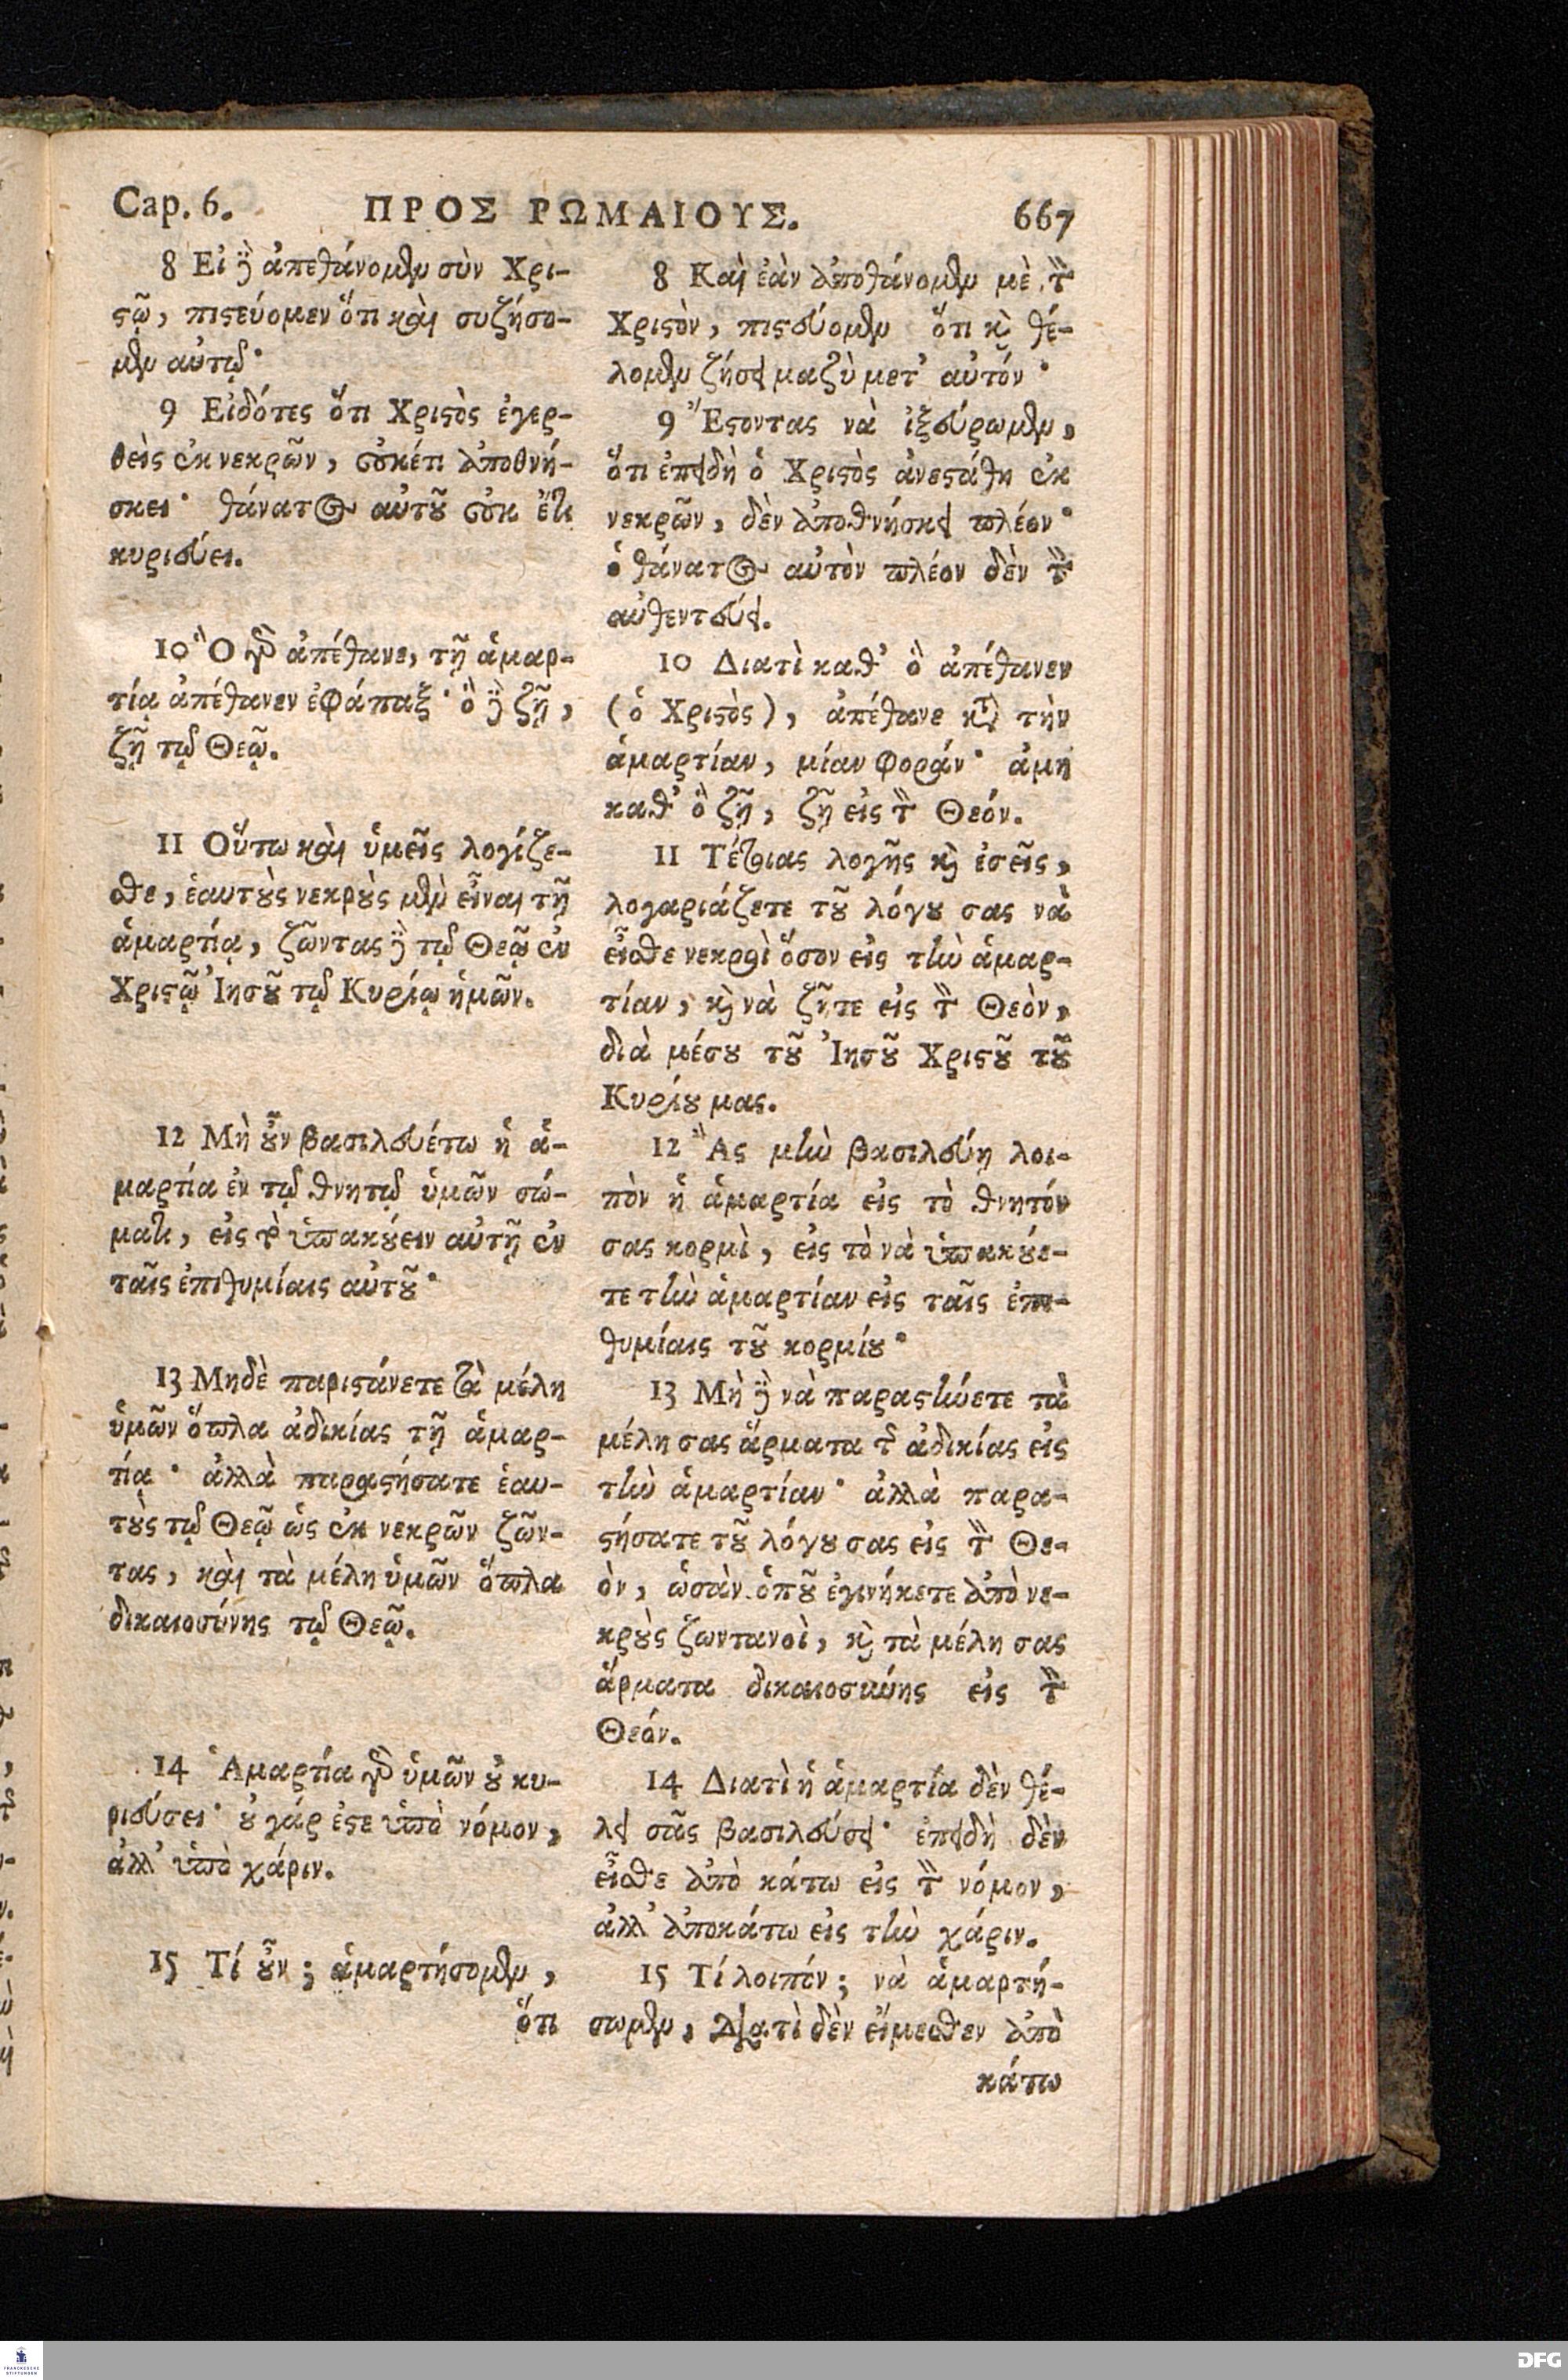 Cap. 6. ΠΡΟΣ ΡΩΜΑΙΟΥΣ. 667
8 Εἰ δὲ ἀπεθάνομεν σὺν Χρι-
ϛῷ, πιϛεύομεν ὅτι καὶ συζήσο-
μεν αὐτῷ·
9 Εἰδότες ὅτι Χριϛὸς ἐγερ-
θεὶς ἐκ νεκρῶν, οὐκέτι ἀποθνή-
σκει· θάνατος αὐτȣ͂ οὐκ ἔτι
κυριεύει.
10 Ὃ γὰρ ἀπέθανε, τῇ ἁμαρ-
τίᾳ ἀπέθανεν ἐφάπαξ· ὃ δὲ ζῇ,
ζῇ τῷ Θεῷ.
11 Οὕτω καὶ ὑμεῖς λογίζε-
σθε, ἑαυτȣ̀ς νεκρȣ̀ς μὲν εἶναι τῇ
ἁμαρτίᾳ, ζῶντας δὲ τῷ Θεῷ ἐν
Χριϛῷ Ἰησȣ͂ τῷ Κυρίῳ ἡμῶν.
12 Μὴ ȣ̓͂ν βασιλευέτω ἡ ἁ-
μαρτία ἐν τῷ θνητῷ ὑμῶν σώ-
ματι, εἰς τὸ ὑπακȣ́ειν αὐτῇ ἐν
ταῖς ἐπιθυμίαις αὐτȣ͂·
13 Μηδὲ παριϛάνετε τὰ μέλη
ὑμῶν ὅπλα ἀδικίας τῇ ἁμαρ-
τίᾳ· ἀλλὰ παραϛήσατε ἑαυ-
τȣ̀ς τῷ Θεῷ ὡς ἐκ νεκρῶν ζῶν-
τας, καὶ τὰ μέλη ὑμῶν ὅπλα
δικαιοσύνης τῷ Θεῷ.
14 Ἁμαρτία γὰρ ὑμῶν ȣ̓ κυ-
ριεύσει· ȣ̓ γάρ ἐϛε ὑπὸ νόμον,
ἀλλ' ὑπὸ χάριν.
15 Τί ȣ̓͂ν; ἁμαρτήσομεν,
ὅτι
8 Καὶ ἐὰν ἀποθάνομεν μὲ τὸν
Χριϛὸν, πιϛεύομεν ὅτι καὶ θέ-
λομεν ζήσει μαζὺ μετ' αὐτόν·
9 Ἔϛοντας νὰ ἰξεύρωμεν,
ὅτι ἐπειδὴ ὁ Χριϛὸς ἀνεϛάθη ἐκ
νεκρῶν, δὲν ἀποθνήσκει πλέον·
ὁ θάνατος αὐτὸν πλέον δὲν τὸν
αὐθεντεύει.
10 Διατὶ καθ' ὃ ἀπέθανεν
(ὁ Χριϛὸς), ἀπέθανε κατὰ τὴν
ἁμαρτίαν, μίαν φοράν· ἀμὴ
καθ' ὃ ζῇ, ζῇ εἰς τὸν Θεόν.
11 Τέτοιας λογῆς καὶ ἐσεῖς,
λογαριάζετε τȣ͂ λόγȣ σας νὰ
εἶσθε νεκροὶ ὅσον εἰς τὴν ἁμαρ-
τίαν, καὶ νὰ ζῆτε εἰς τὸν Θεὸν,
διὰ μέσȣ τȣ͂ Ἰησȣ͂ Χριϛȣ͂ τȣ͂
Κυρίȣ μας.
12 Ἂς μὴν βασιλεύῃ λοι-
πὸν ἡ ἁμαρτία εἰς τὸ θνητόν
σας κορμὶ, εἰς τὸ νὰ ὑπακȣ́ε-
τε τὴν ἁμαρτίαν εἰς ταῖς ἐπι-
θυμίαις τȣ͂ κορμίȣ·
13 Μὴ δὲ νὰ παραϛήνετε τὰ
μέλη σας ἄρματα τῆς ἀδικίας εἰς
τὴν ἁμαρτίαν· ἀλλὰ παρα-
ϛήσατε τȣ͂ λόγȣ σας εἰς τὸν Θε-
ὸν, ὡσὰν ὁπȣ͂ ἐγινήκετε ἀπὸ νε-
κρȣ̀ς ζωντανοὶ, καὶ τὰ μέλη σας
ἄρματα δικαιοσύνης εἰς τὸν
Θεόν.
14 Διατὶ ἡ ἁμαρτία δὲν θέ-
λει σᾶς βασιλεύσει· ἐπειδὴ δὲν
εἶσθε ἀπὸ κάτω εἰς τὸν νόμον,
ἀλλ' ἀποκάτω εἰς τὴν χάριν.
15 Τί λοιπόν; νὰ ἁμαρτή-
σωμεν, διατὶ δὲν εἴμεσθεν ἀπὸ
κάτω
FRANCKESCHE
STIFTUNGEN
DFG